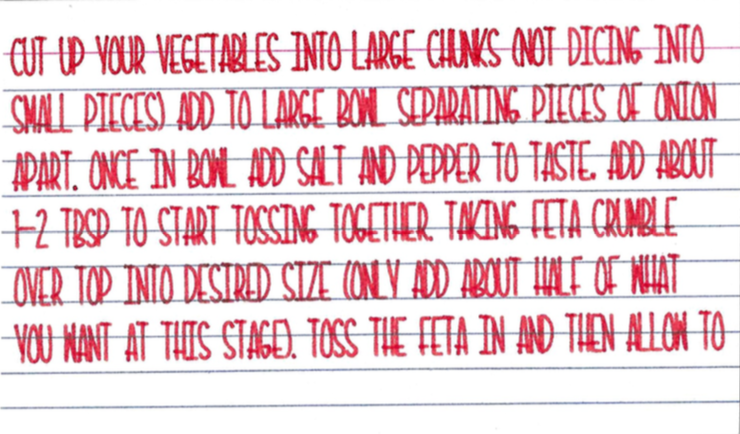 CUT UP YOUR VEGETABLES INTO LARGE CHUNKS (NOT DICING INTO
SMALL PIECES) ADD TO LARGE BOWL SEPARATING PIECES OF ONION
APART. ONCE IN BOWL ADD SALT AND PEPPER TO TASTE. ADD ABOUT
1-2 TBSP TO START TOSSING TOGETHER. TAKING FETA CRUMBLE
OVER TOP INTO DESIRED SIZE (ONLY ADD ABOUT HALF OF WHAT
YOU WANT AT THIS STAGE). TOSS THE FETA IN AND THEN ALLOW TO